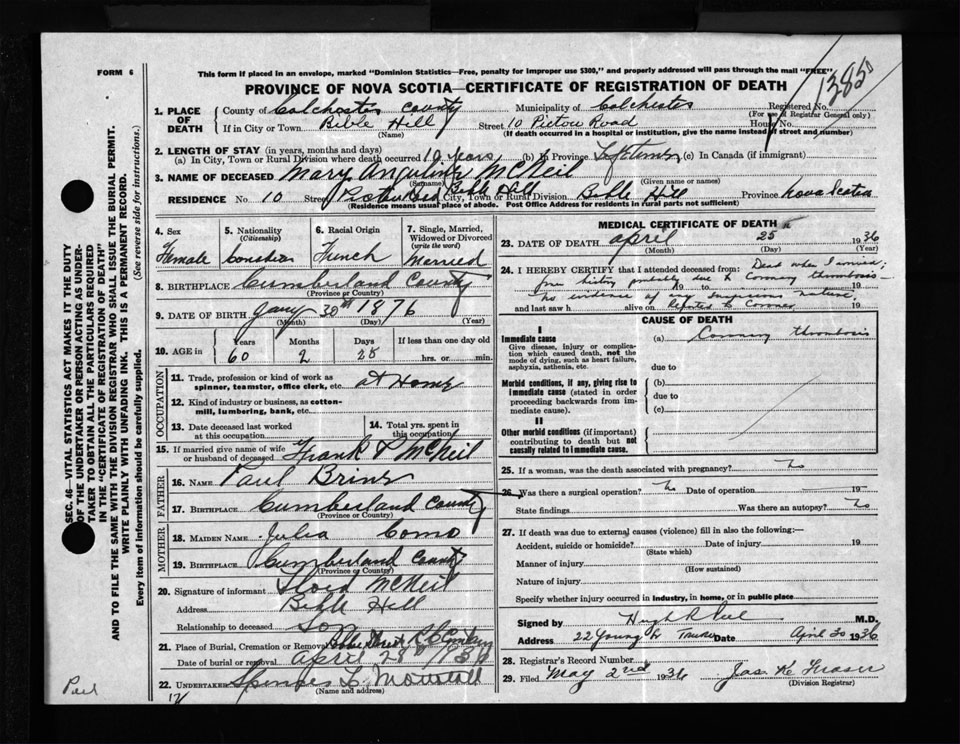 FORM 6
This form if placed in an envelope, marked "Dominion Statistics—Free, penalty for improper use $300," and properly addressed will pass through the mail "FREE"
PROVINCE OF NOVA SCOTIA—CERTIFICATE OF REGISTRATION OF DEATH
Registered No.
(For use of Registrar General only)
1. PLACE OF DEATH
County of Colchester County Municipality of Colchester
If in City or Town Bible Hill Street 10 Pictou Road House No.
(Name) (If death occurred in a hospital or institution, give the name instead of street and number)
2. LENGTH OF STAY (in years, months and days)
(a) In City, Town or Rural Division where death occurred 19 years (b) In Province (c) In Canada (if immigrant)
3. NAME OF DECEASED Mary McNeil
(Surname) (Given name or names)
RESIDENCE No. 10 Street Pictou Road Bible Hill City, Town or Rural Division Bible Hill Province Nova Scotia
(Residence means usual place of abode. Post Office Address for residents in rural parts not sufficient)
4. Sex
Female
5. Nationality
(Citizenship)
Canadian
6. Racial Origin
French
7. Single, Married, Widowed or Divorced
(write the word)
Married
8. BIRTHPLACE Cumberland County
(Province or Country)
9. DATE OF BIRTH 30th 1876
(Month) (Day) (Year)
10. AGE in
Years Months Days If less than one day old
60 2 25 hrs. or min.
OCCUPATION
11. Trade, profession or kind of work as spinner, teamster, office clerk, etc. at Home
12. Kind of industry or business, as cotton-mill, lumbering, bank, etc.
13. Date deceased last worked at this occupation
14. Total yrs. spent in this occupation
15. If married give name of wife or husband of deceased Frank McNeil
FATHER
16. NAME Paul
17. BIRTHPLACE Cumberland County
(Province or Country)
MOTHER
18. MAIDEN NAME Julia Como
19. BIRTHPLACE Cumberland County
(Province or Country)
20. Signature of informant McNeil
Address Bible Hill
Relationship to deceased Son
21. Place of Burial, Cremation or Removal
Date of burial or removal April 28 1936
22. UNDERTAKER
(Name and address)
MEDICAL CERTIFICATE OF DEATH
23. DATE OF DEATH April 25 1936
(Month) (Day) (Year)
24. I HEREBY CERTIFY that I attended deceased from: Dead when I arrived;
from history probably due to Coronary thrombosis—
no evidence of any suspicious nature,
and last saw h alive on Reported to Coroner 19
CAUSE OF DEATH
I
Immediate cause
Give disease, injury or complication which caused death, not the mode of dying, such as heart failure, asphyxia, asthenia, etc.
(a) Coronary thrombosis
due to
Morbid conditions, if any, giving rise to immediate cause (stated in order proceeding backwards from immediate cause).
(b)
due to
(c)
II
Other morbid conditions (if important) contributing to death but not causally related to immediate cause.
25. If a woman, was the death associated with pregnancy? No
26. Was there a surgical operation? No Date of operation 19
State findings Was there an autopsy? No
27. If death was due to external causes (violence) fill in also the following:—
Accident, suicide or homicide? Date of injury 19
(State which)
Manner of injury
(How sustained)
Nature of injury
Specify whether injury occurred in industry, in home, or in public place
Signed by M.D.
Address 22 Young St Truro Date April 30 1936
28. Registrar's Record Number
29. Filed May 2nd 1936 Jas. K. Fraser
(Division Registrar)
SEC. 46—VITAL STATISTICS ACT MAKES IT THE DUTY
OF THE UNDERTAKER OR PERSON ACTING AS UNDER-
TAKER TO OBTAIN ALL THE PARTICULARS REQUIRED
IN THE "CERTIFICATE OF REGISTRATION OF DEATH"
AND TO FILE THE SAME WITH THE DIVISION REGISTRAR WHO SHALL ISSUE THE BURIAL PERMIT.
WRITE PLAINLY WITH UNFADING INK. THIS IS A PERMANENT RECORD.
Every item of information should be carefully supplied. (See reverse side for instructions.)